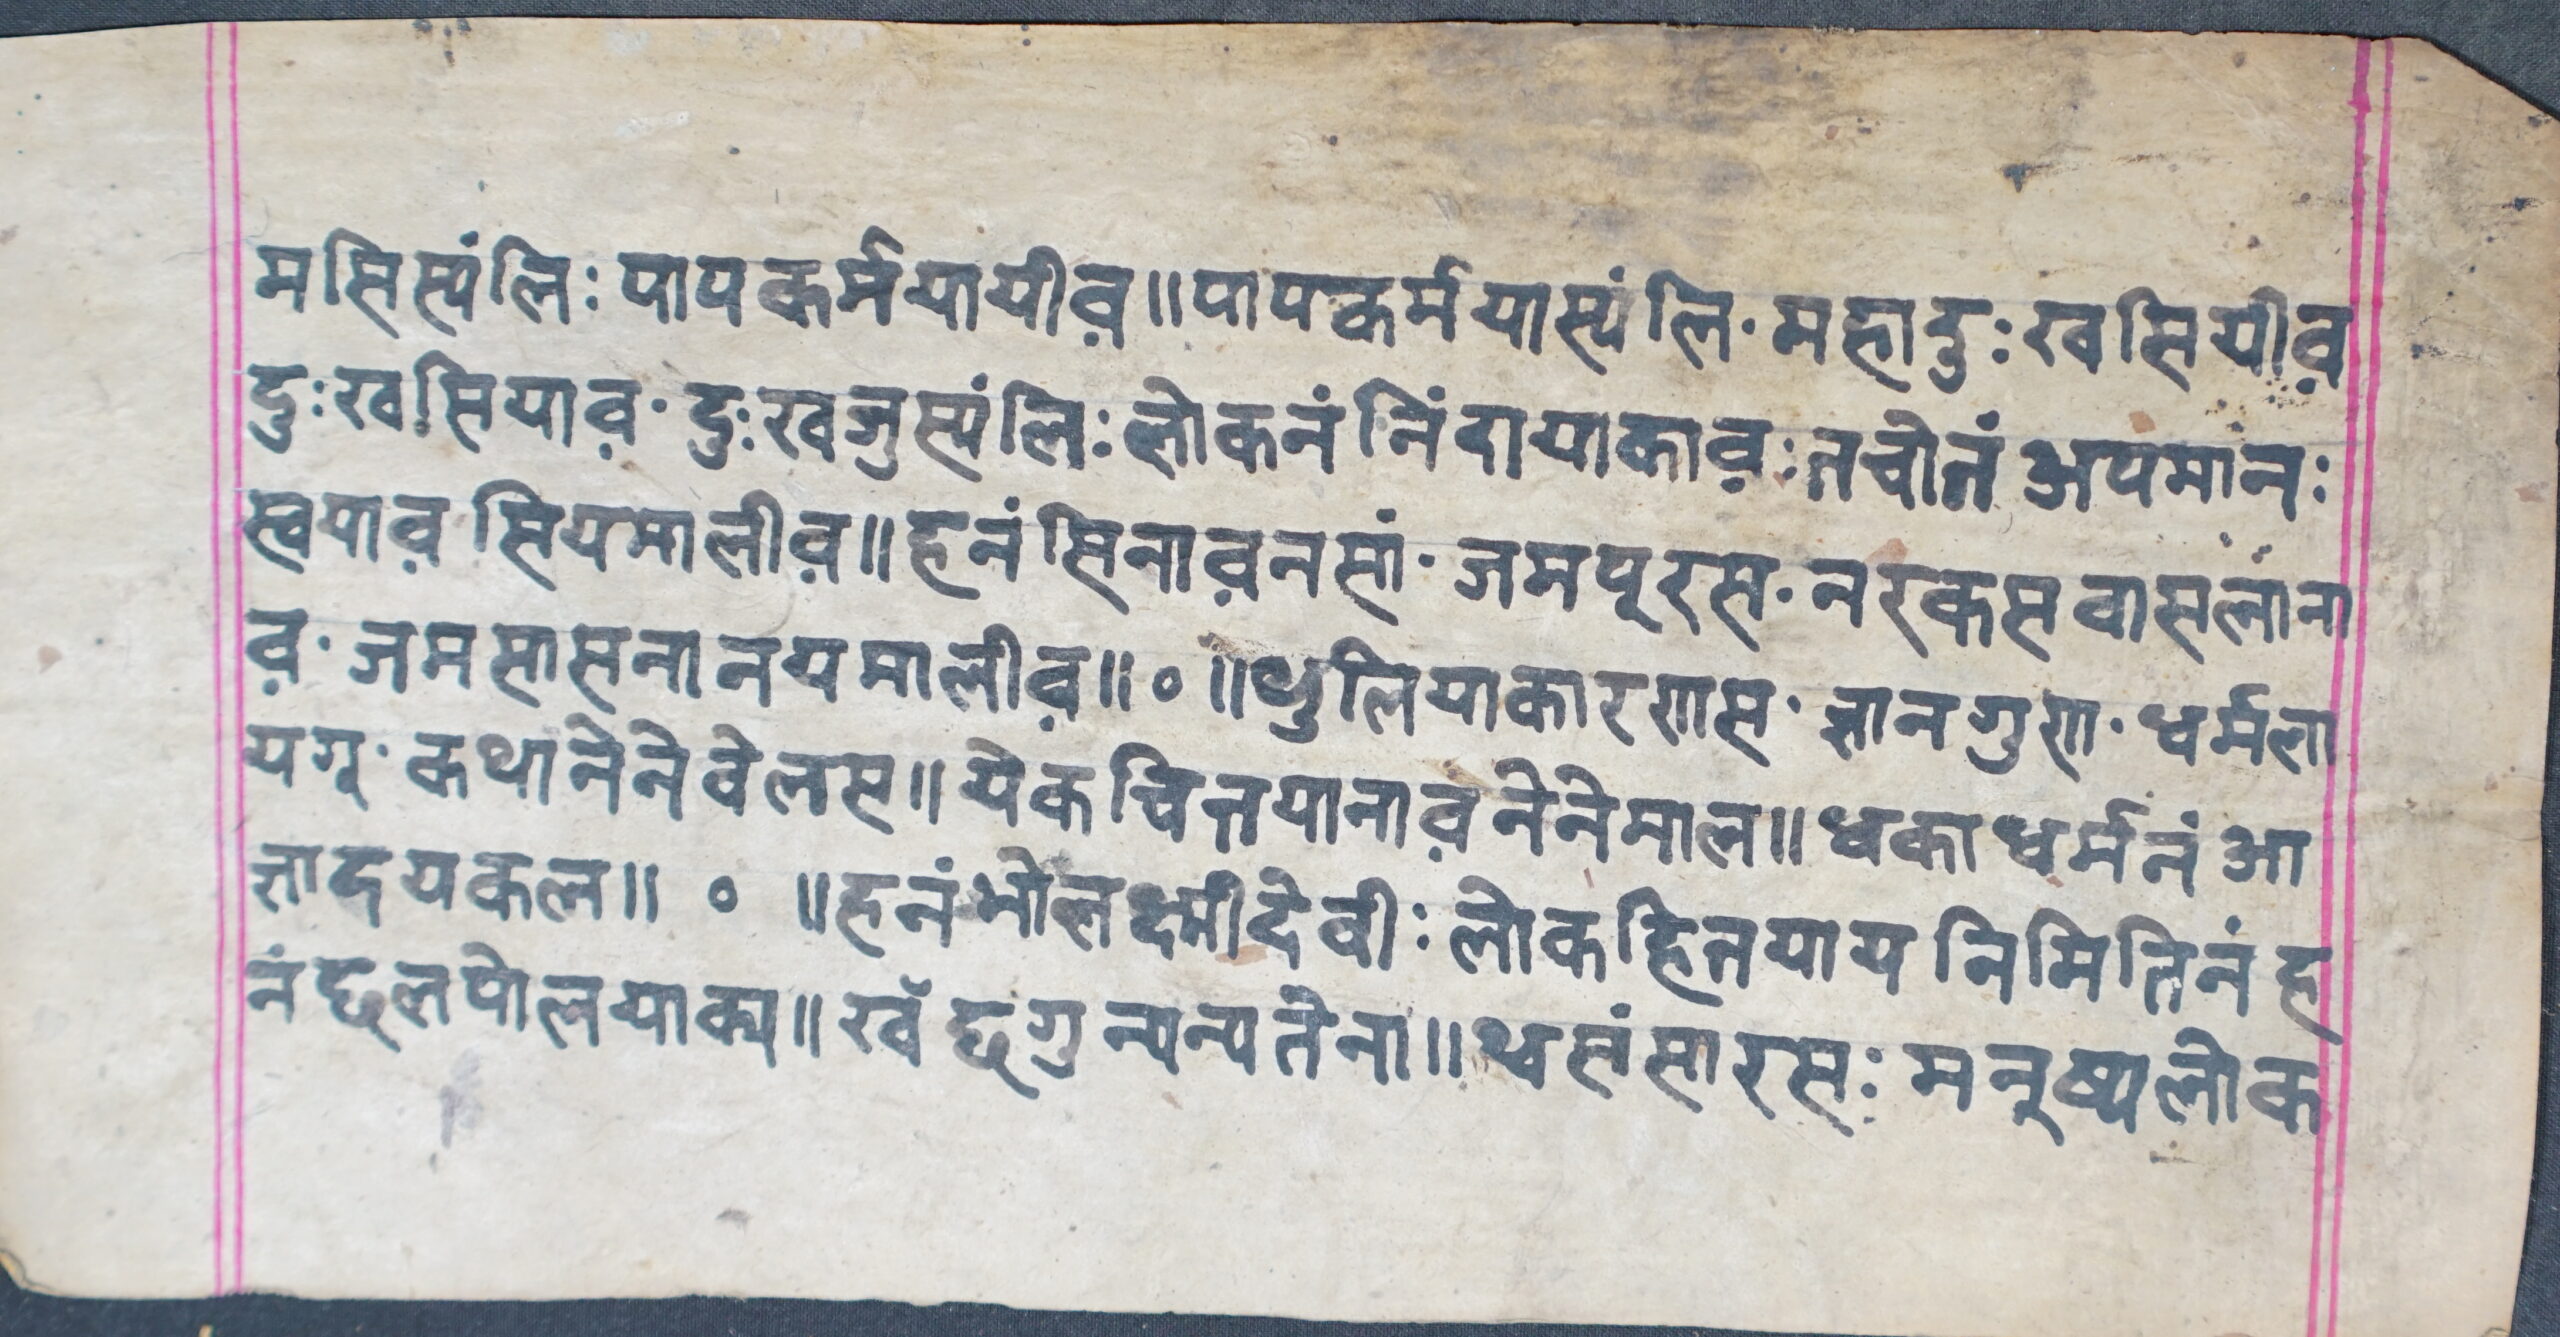 मसिस्यंलिः पापकर्मयायीव़॥पापकर्मयास्यंलि· महादुःखसियीव़
दुःखसियाव़· दुःखजुस्यंलिः लोकनं निंदायाकाव़ः तचोतं अपमानः
स्वयाव़ सियमालीव़॥हनं सिनाव़नसां· जमपूरस· नरकस वासलाना
व़· जमसासनानयमालीव़॥०॥थुलियाकारणस· ज्ञानगुण· धर्मला
यगू· कथानेनेवेलस॥ येकचित्तयानाव़ नेनेमाल॥ धका धर्मनं आ
ज्ञादयकल॥ ० ॥हनंभोलक्ष्मीदेवीः लोकहितयाय निमितिनं ह
नं छलपोलयाक्य॥ खँ छगु न्यन्यतेना॥ थ्वसंसारसः मनूष्यलोक